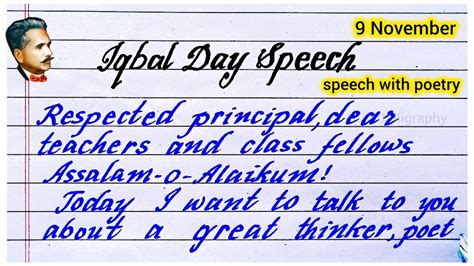 9 November
Iqbal Day Speech
speech with poetry
Respected principal, dear
teachers and class fellows
Assalam-o-Alaikum!
Today I want to talk to you
about a great thinker, poet